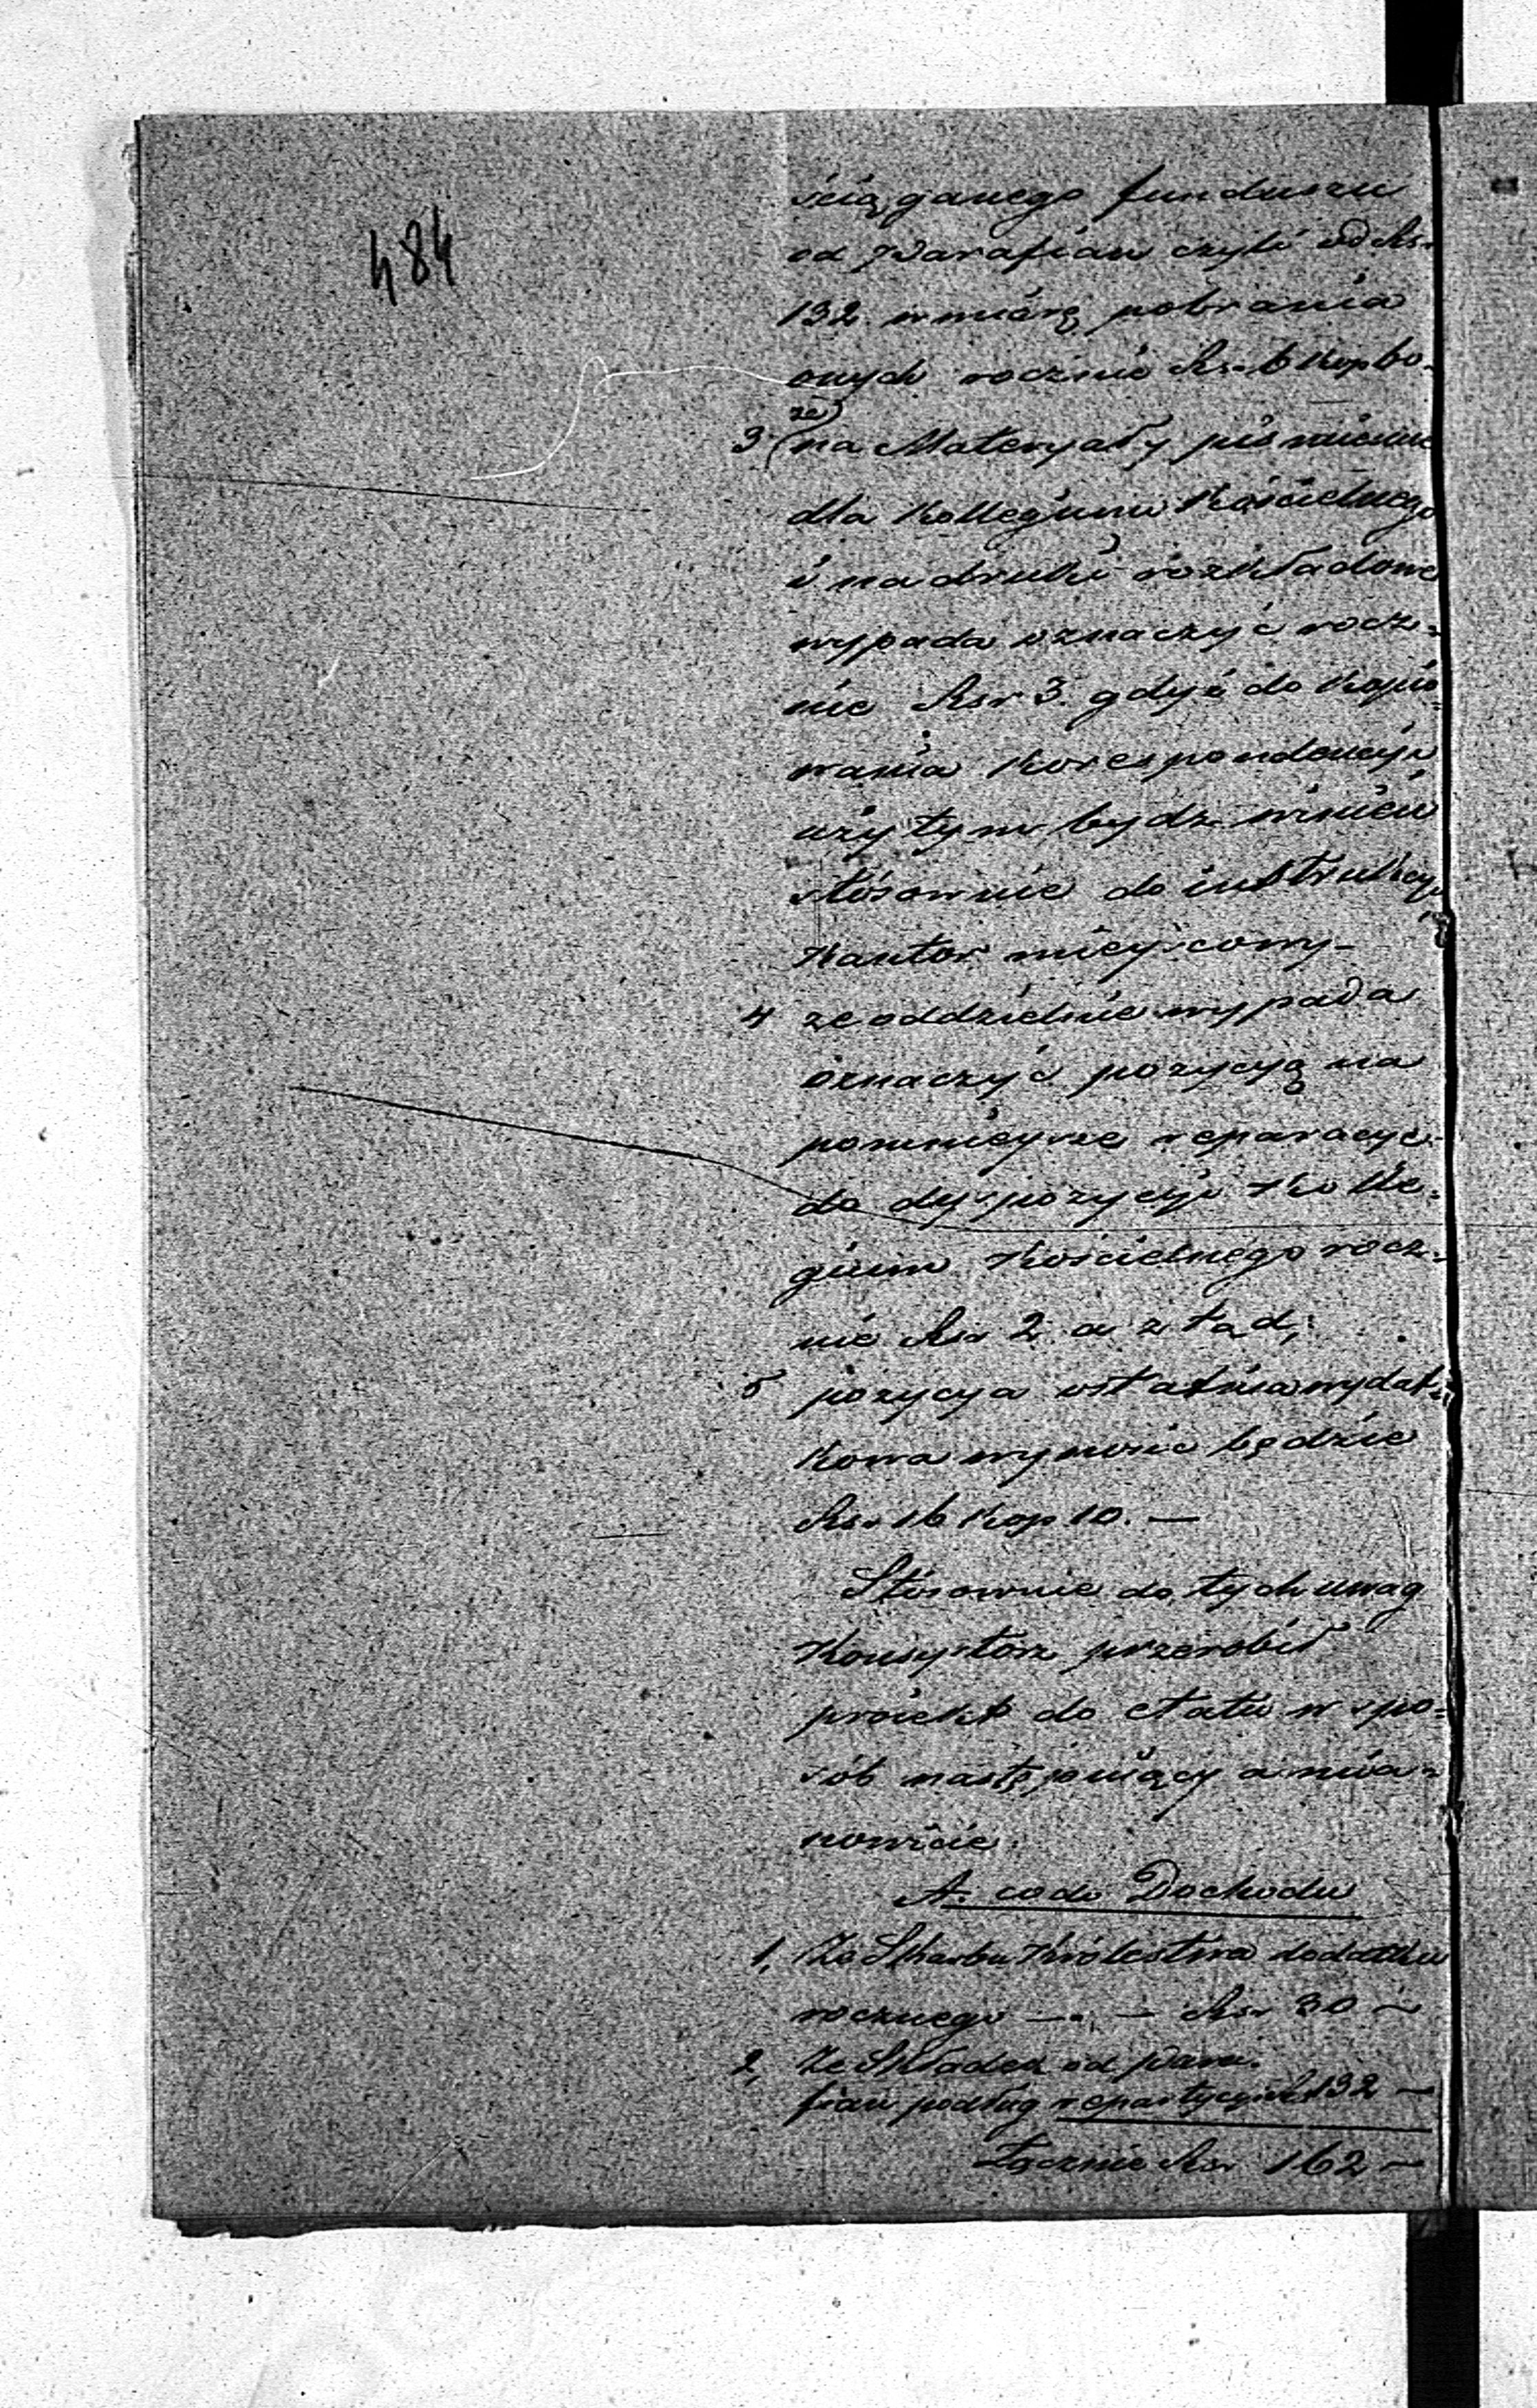 484
ściąganego funduszu
od Parafian czyli od Rsr
132. w miarę pobrania
onych rocznie Rsr 6 Kop 60.
że
3 (na Materyały piśmienne
dla Kollegium Kościelnego
i na druki rozkładowe
wypada oznaczyć rocz=
nie Rsr 3. gdyż do Kopio=
wania Korespondencyi
użytym bydz winien
stósownie do instrukcyi
Kantor mieyscowy_
4 że oddzielnie wypada
oznaczyć pozycyą na
pomnieysze reparacye
do dyspozycyi Kolle=
gium Kościelnego rocz=
nie Rsr 2 a ztąd,
5 pozycya ostatnia wydat=
kowa wynosić będzie
Rsr 16 Kop 10. —
Stósownie do tych uwag
Konsystorz przerobił
proiekt do etatu w spo=
sób następuiący a mia=
nowicie
A. co do Dochodu
1, Ze Skarbu Królestwa dodatku
rocznego — . — Rsr 30 —
2, Ze Składek od Para=
fian podług repartycyi Rsr 132 —
Łącznie Rsr 162 —